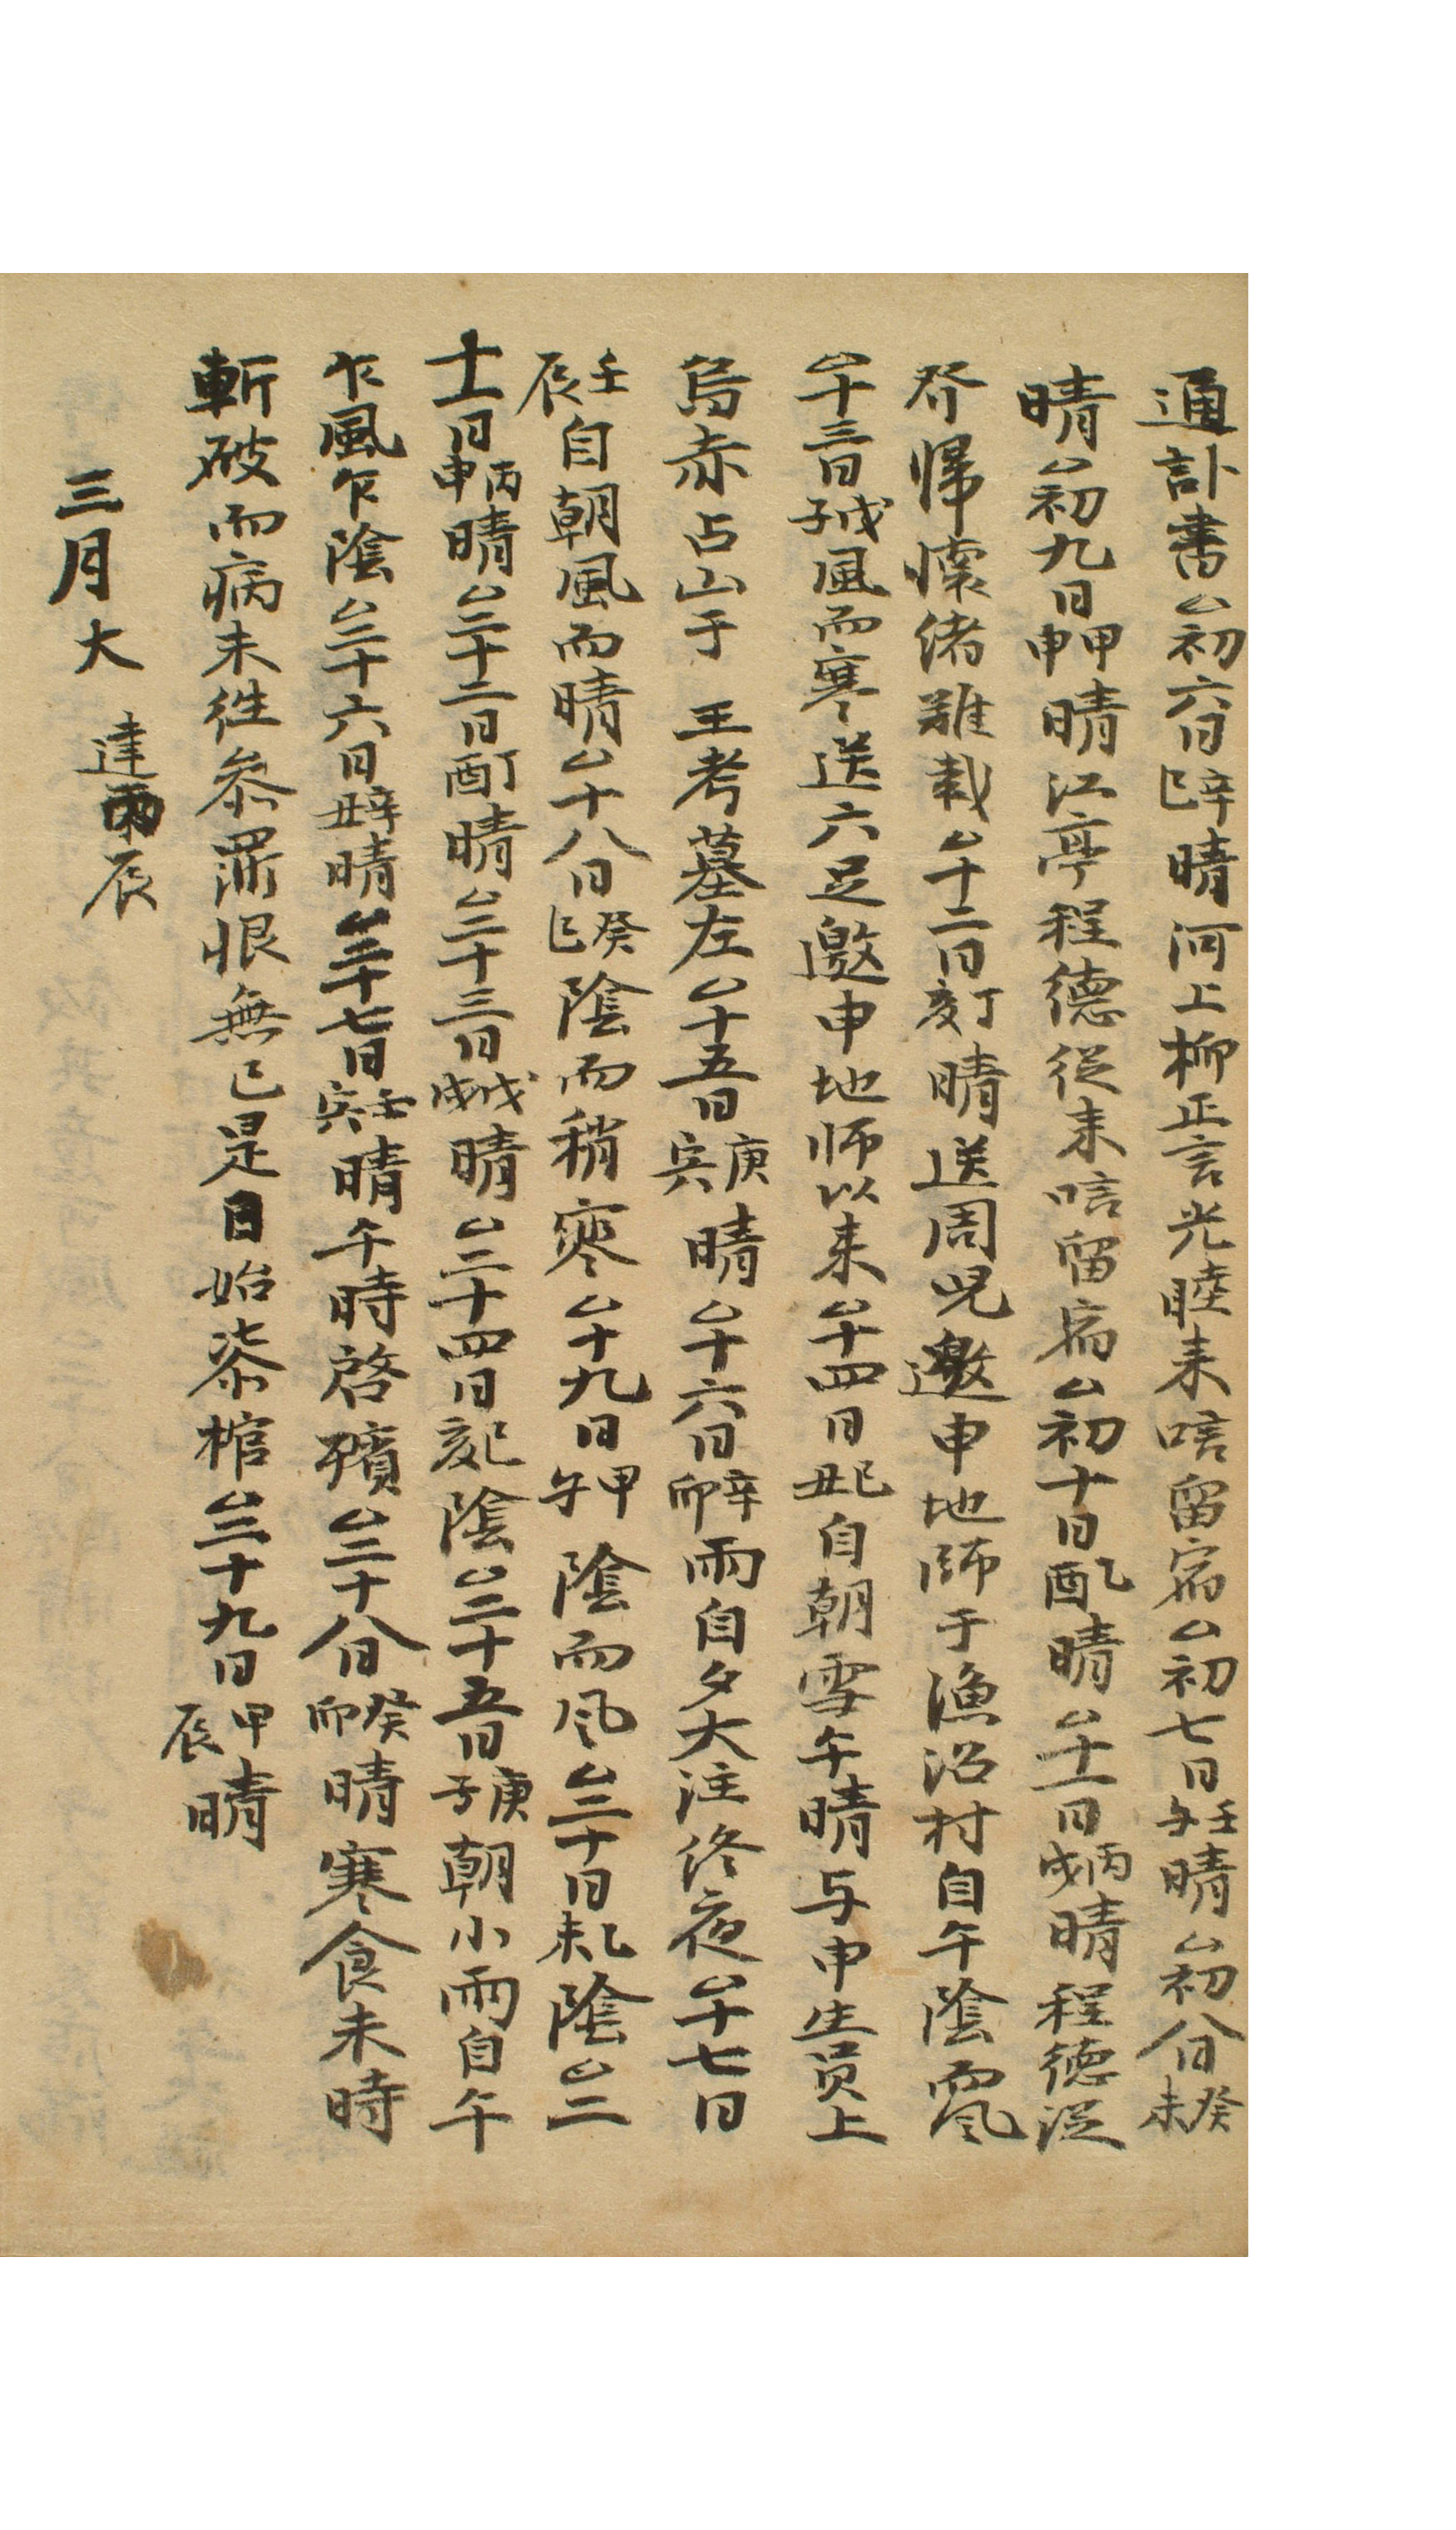 通訃書△初六日辛巳晴河上柳正言光睦来唁留宿△初七日壬午晴△初八日癸未
晴△初九日甲申晴江亭程德従来唁留宿△初十日乙酉晴△十一日丙戌晴程徳従
芥帰懷緒難裁△十二日丁亥晴送周児邀申地師于漁沼村自午陰而風
△十三日戊子風而寒送六足邀申地师以来△十四日己丑自朝雪午晴与申生员上
烏赤占山于 王考墓左△十五日庚寅晴△十六日辛卯雨自夕大注终夜△十七日
壬辰自朝風而晴△十八日癸巳陰而稍寒△十九日甲午陰而风△二十日乙未陰△二
十一日丙申晴△二十二日丁酉晴△二十三日戊戌晴△二十四日己亥陰△二十五日庚子朝小雨自午
乍風乍陰△二十六日辛丑晴△二十七日壬寅晴午時啓殯△二十八日癸卯晴寒食未時
斬破而病未徃叅罪恨無已是日始柒棺△二十九日甲辰晴
三月大 建丙辰